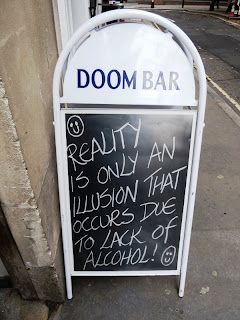 DOOM BAR
REALITY
IS ONLY AN
ILLUSION THAT
OCCURS DUE
TO LACK OF
ALCOHOL!